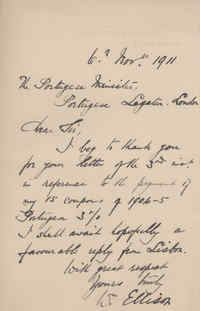 6th Nov. 1911
The Portuguese Minister,
Portuguese Legation. London
Dear Sir,
I beg to thank you
for your letter of the 3rd inst.
in reference to the payment of
my 15 coupons of
Portuguese 3%
I shall await hopefully a
favourable reply from Lisbon.
With great respect
Yours truly
Ellison